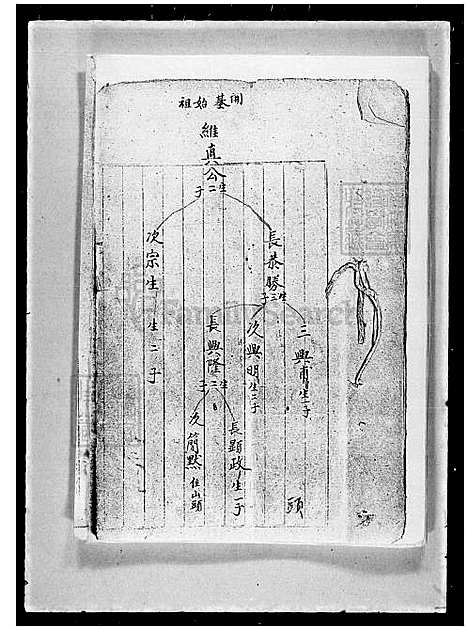 開基始祖
維真公生二子
長恭勝生三子
次宗生生二子
三興甫生二子
次興明生二子
長興隆生二子
長顯政生一子
次簡默住山頭
頭
FamilySearch